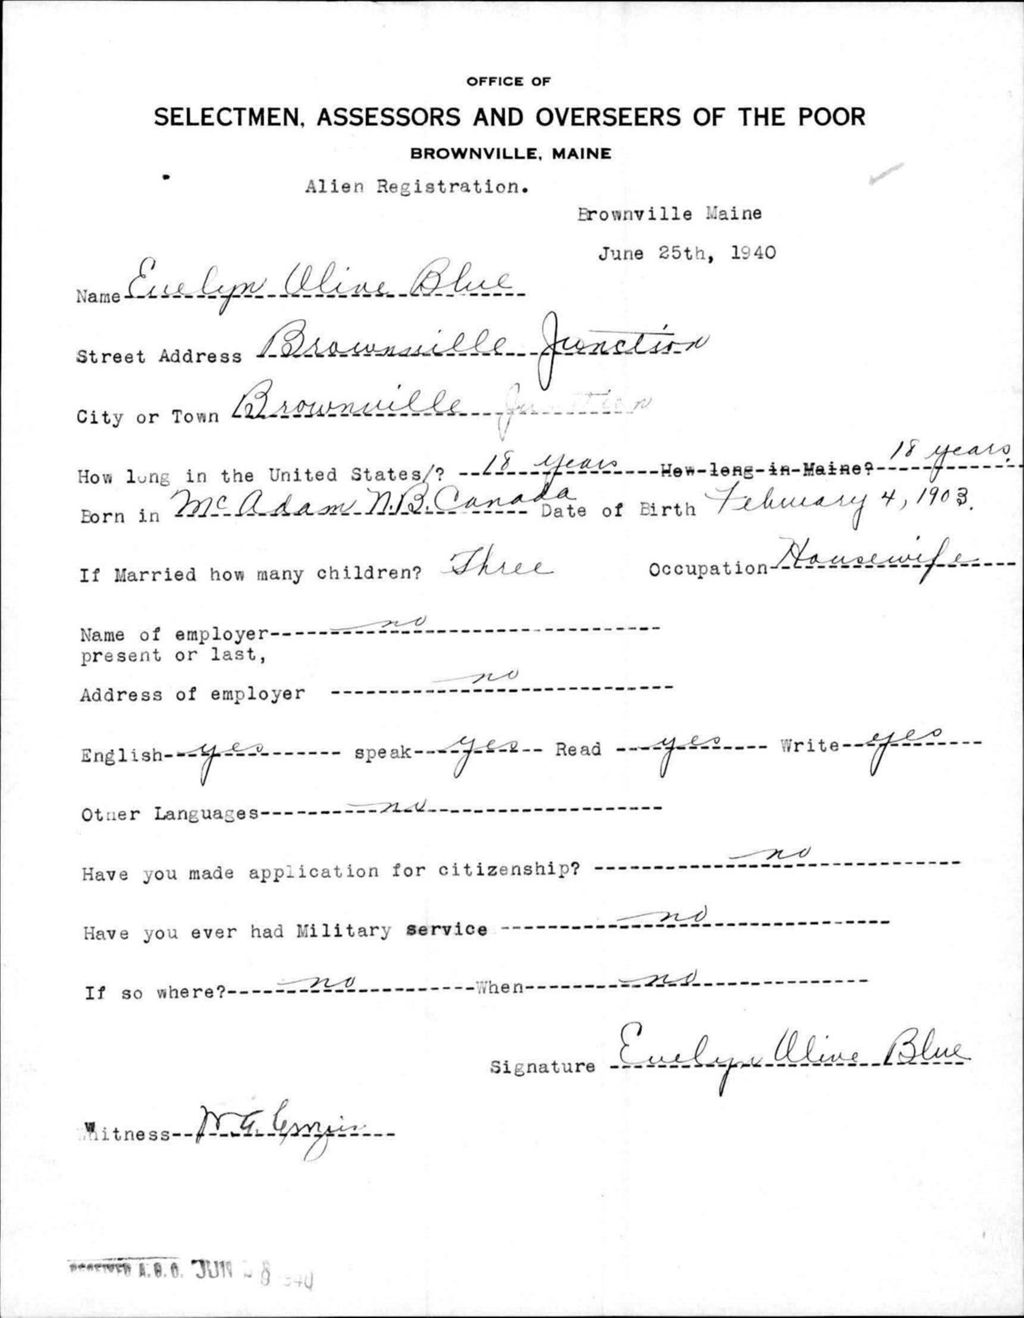 OFFICE OF
SELECTMEN, ASSESSORS AND OVERSEERS OF THE POOR
BROWNVILLE, MAINE
Alien Registration.
Brownville Maine
June 25th, 1940
Name Evelyn Olive Blue
Street Address Brownville Junction
City or Town Brownville Junction
How long in the United States/? 18 years How long in Maine? 18 years.
Born in McAdam N.B. Canada Date of Birth February 4, 1903.
If Married how many children? Three Occupation Housewife
Name of employer no
present or last,
Address of employer no
English yes speak yes Read yes Write yes
Other Languages no
Have you made application for citizenship? no
Have you ever had Military service no
If so where? no When no
Signature Evelyn Olive Blue
Witness W.G.
RECEIVED A.G.O. JUN 28 1940